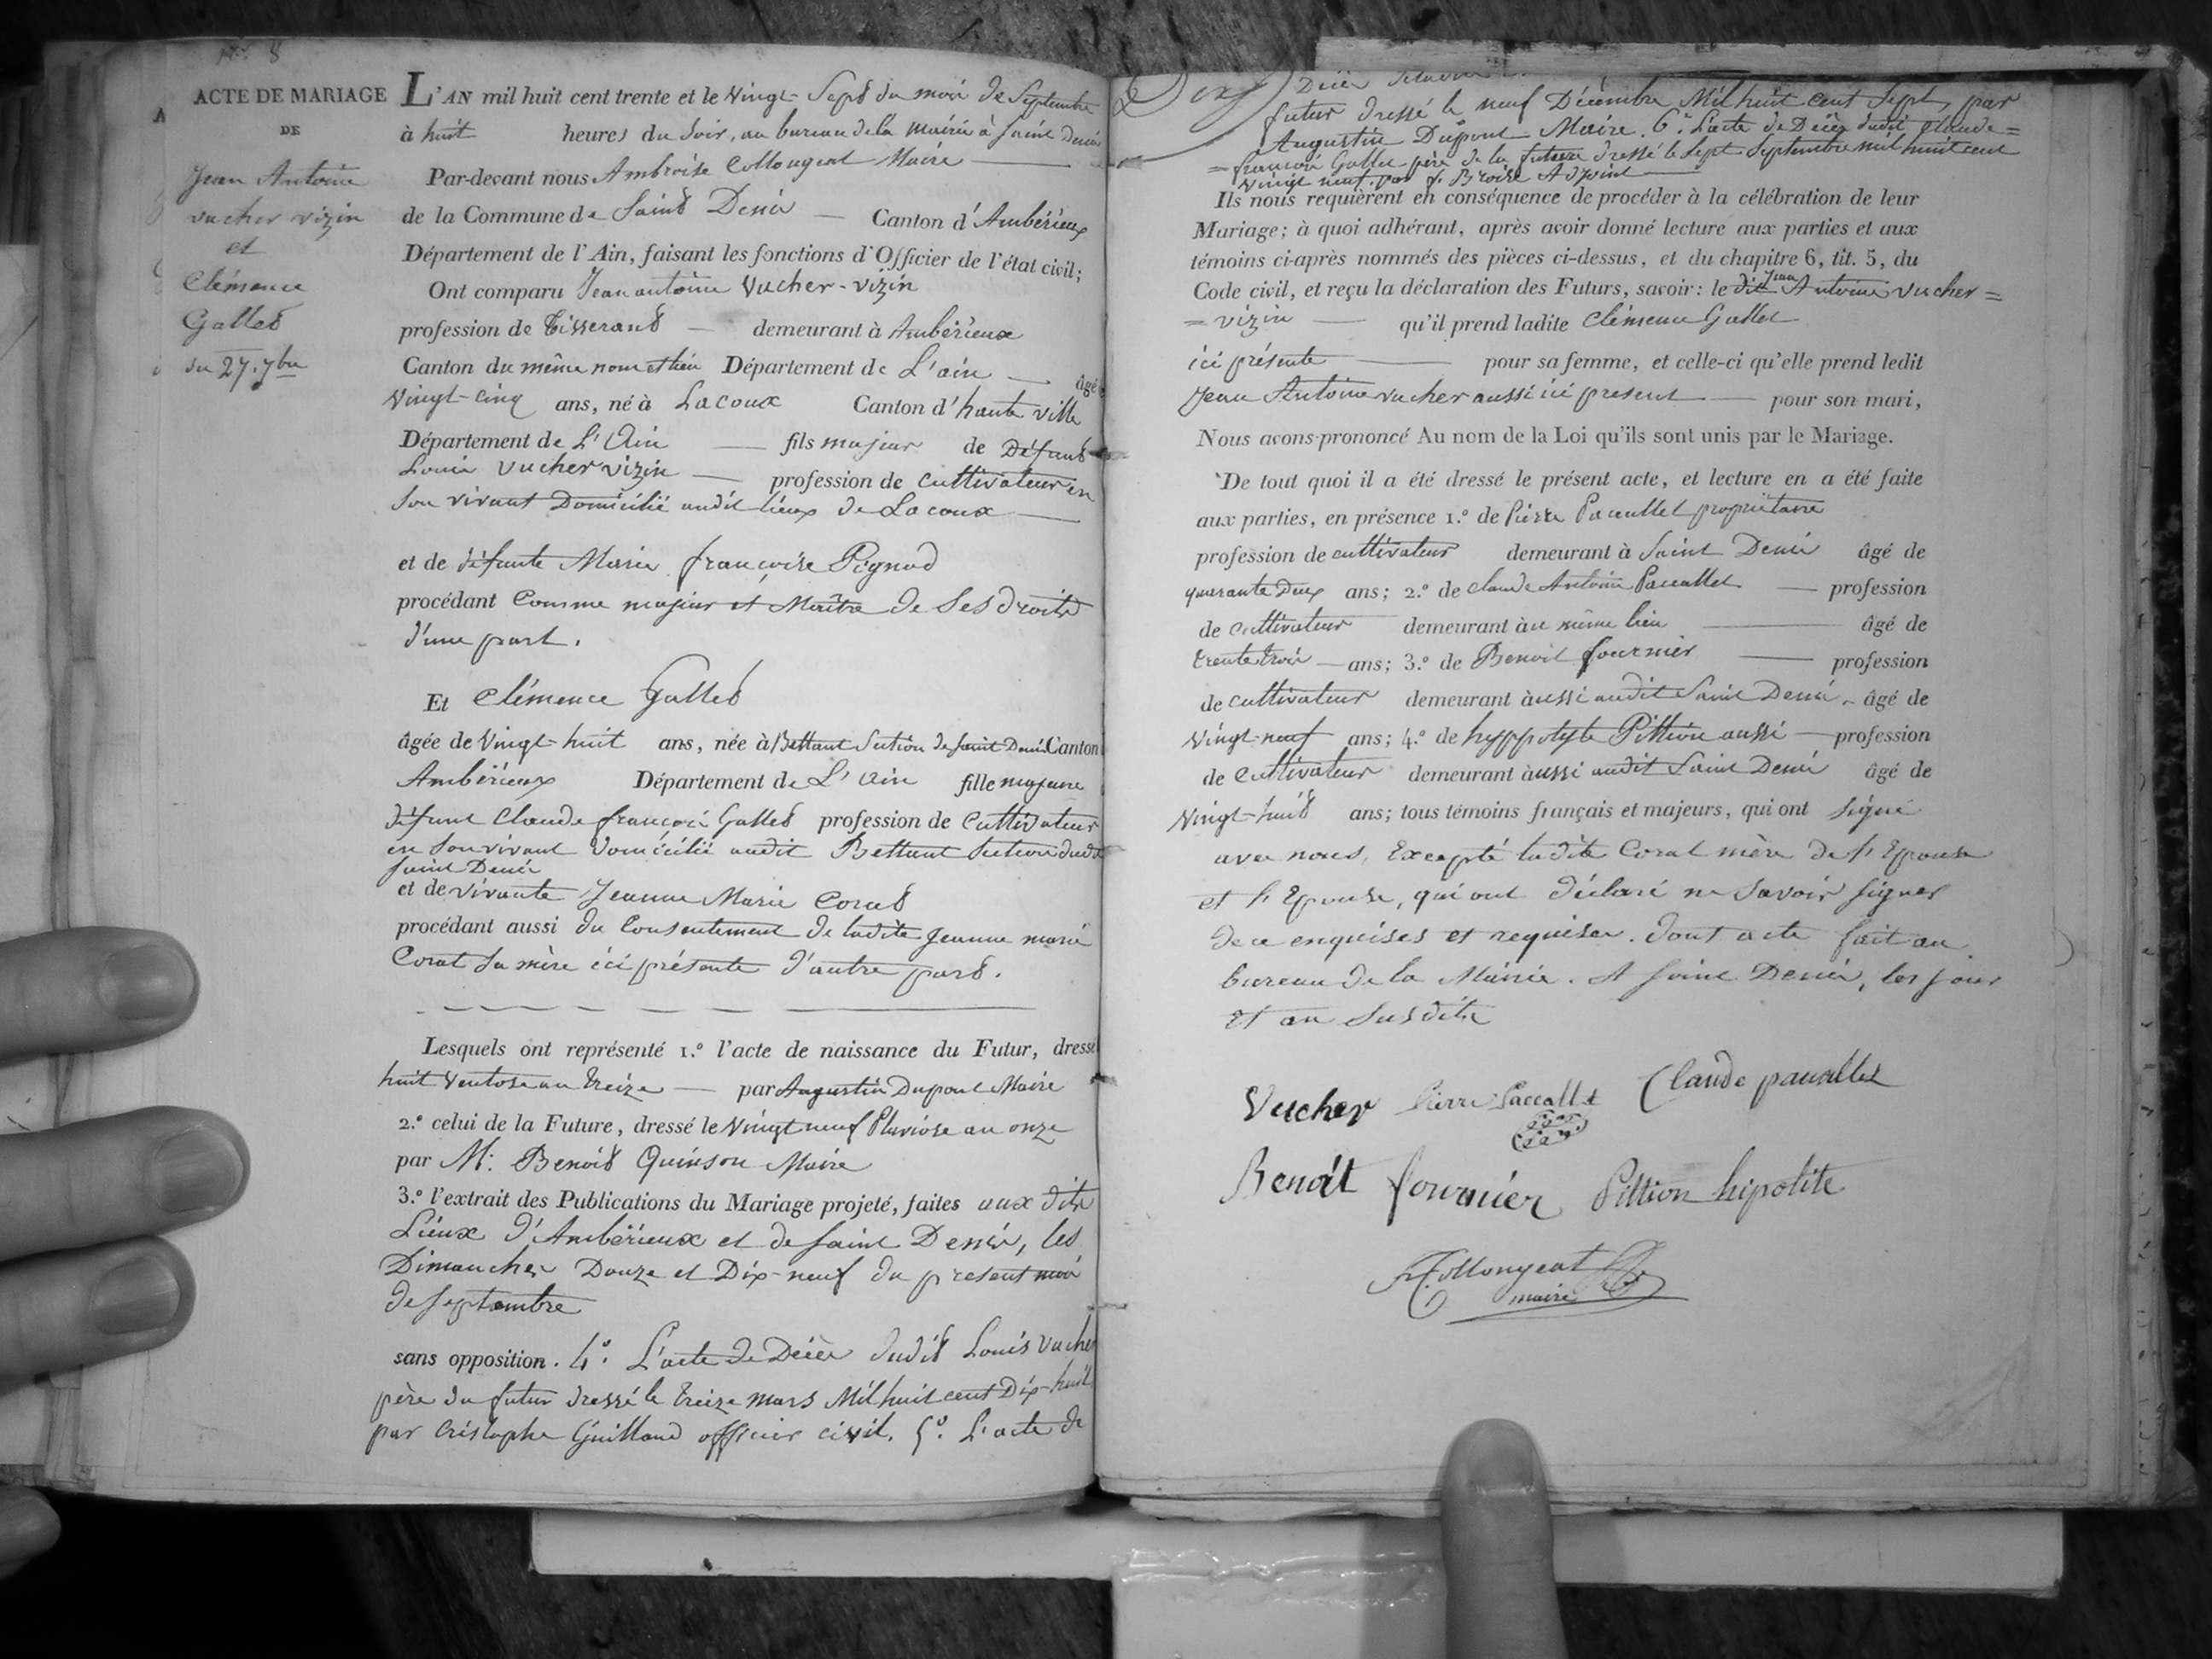 N° 8
ACTE DE MARIAGE
DE
Jean Antoine
vucher vizin
et
Clémence
Gallet
du 27. 7bre
L'AN mil huit cent trente et le Vingt-Sept du mois de Septembre
à huit heures du Soir, au bureau de la Mairie à Saint Denis
Par-devant nous Ambroise Collongeat Maire
de la Commune de Saint Denis Canton d'Ambérieux
Département de l'Ain, faisant les fonctions d'Officier de l'état civil;
Ont comparu Jean antoine Vucher-vizin
profession de Tisserand demeurant à Ambérieux
Canton du même nom et lieu Département de L'ain âgé
Vingt-cinq ans, né à Lacoux Canton d'haute ville
Département de L'Ain fils majeur de Défunt
Louis Vucher Vizin profession de cultivateur en
Son vivant Domicilié audit lieux de Lacoux
et de défunte Marie françoise Pignod
procédant Comme majeur et Maître de Ses droits
d'une part.
Et Clémence Gallet
âgée de Vingt-huit ans, née à Bettant Section de Saint Denis Canton
Ambérieux Département de L'Ain fille majeure
défunt Claude françois Gallet profession de Cultivateur
en Son vivant Domicilié audit Bettant Section dudit
Saint Denis
et de vivante Jeanne Marie Corat
procédant aussi du Consentement de ladite Jeanne marie
Corat Sa mère ici présente d'autre part.
Lesquels ont représenté 1.º l'acte de naissance du Futur, dressé
huit Ventose an treize par Augustin Dupont Maire
2.º celui de la Future, dressé le Vingt neuf Pluviose an onze
par M. Benoit Quinson Maire
3.º l'extrait des Publications du Mariage projeté, faites aux dits
Lieux d'Ambérieux et de Saint Denis, les
Dimanches Douze et Dix-neuf du présent mois
de Septembre
sans opposition. 4º. L'acte de Décès dudit Louis Vucher
père du futur dressé le treize mars Mil huit cent Dix-huit
par Cristophe Guilland officier civil. 5º. L'acte de
Décès
futur dressé le neuf Décembre Mil huit cent Sept, par
Augustin Dupont Maire. 6º. L'acte de Décès dudit Claude=
=françois Gallet père de la future dressé le Sept Septembre mil huit cent
Vingt neuf. par f. Broise Adjoint
Ils nous requièrent en conséquence de procéder à la célébration de leur
Mariage; à quoi adhérant, après avoir donné lecture aux parties et aux
témoins ci-après nommés des pièces ci-dessus, et du chapitre 6, tit. 5, du
Code civil, et reçu la déclaration des Futurs, savoir: le dit Jean Antoine Vucher=
=vizin qu'il prend ladite Clémence Gallet
ici présente pour sa femme, et celle-ci qu'elle prend ledit
Jean Antoine vucher aussi ici présent pour son mari,
Nous avons prononcé Au nom de la Loi qu'ils sont unis par le Mariage.
De tout quoi il a été dressé le présent acte, et lecture en a été faite
aux parties, en présence 1.º de Pierre Paccallet propriétaire
profession de cultivateur demeurant à Saint Denis âgé de
quarante Deux ans; 2.º de Claude Antoine Paccallet profession
de cultivateur demeurant àu même lieu âgé de
trente trois ans; 3.º de Benoit fournier profession
de cultivateur demeurant àussi audit Saint Denis âgé de
Vingt-neuf ans; 4.º de hyppolyte Pittion aussi profession
de Cultivateur demeurant àussi audit Saint Denis âgé de
Vingt-huit ans; tous témoins français et majeurs, qui ont Signé
avec nous, Excepté ladite Corat mère de l'Epouse
et l'Epouse, qui ont déclaré ne Savoir Signer
de ce enquises et requises. Dont acte fait au
bureau de la Mairie. A Saint Denis, les jour
et an Susdits
Vucher Pierre Paccallet Claude paccallet
Benoit fournier Pittion hipolite
A. Collongeat
maire